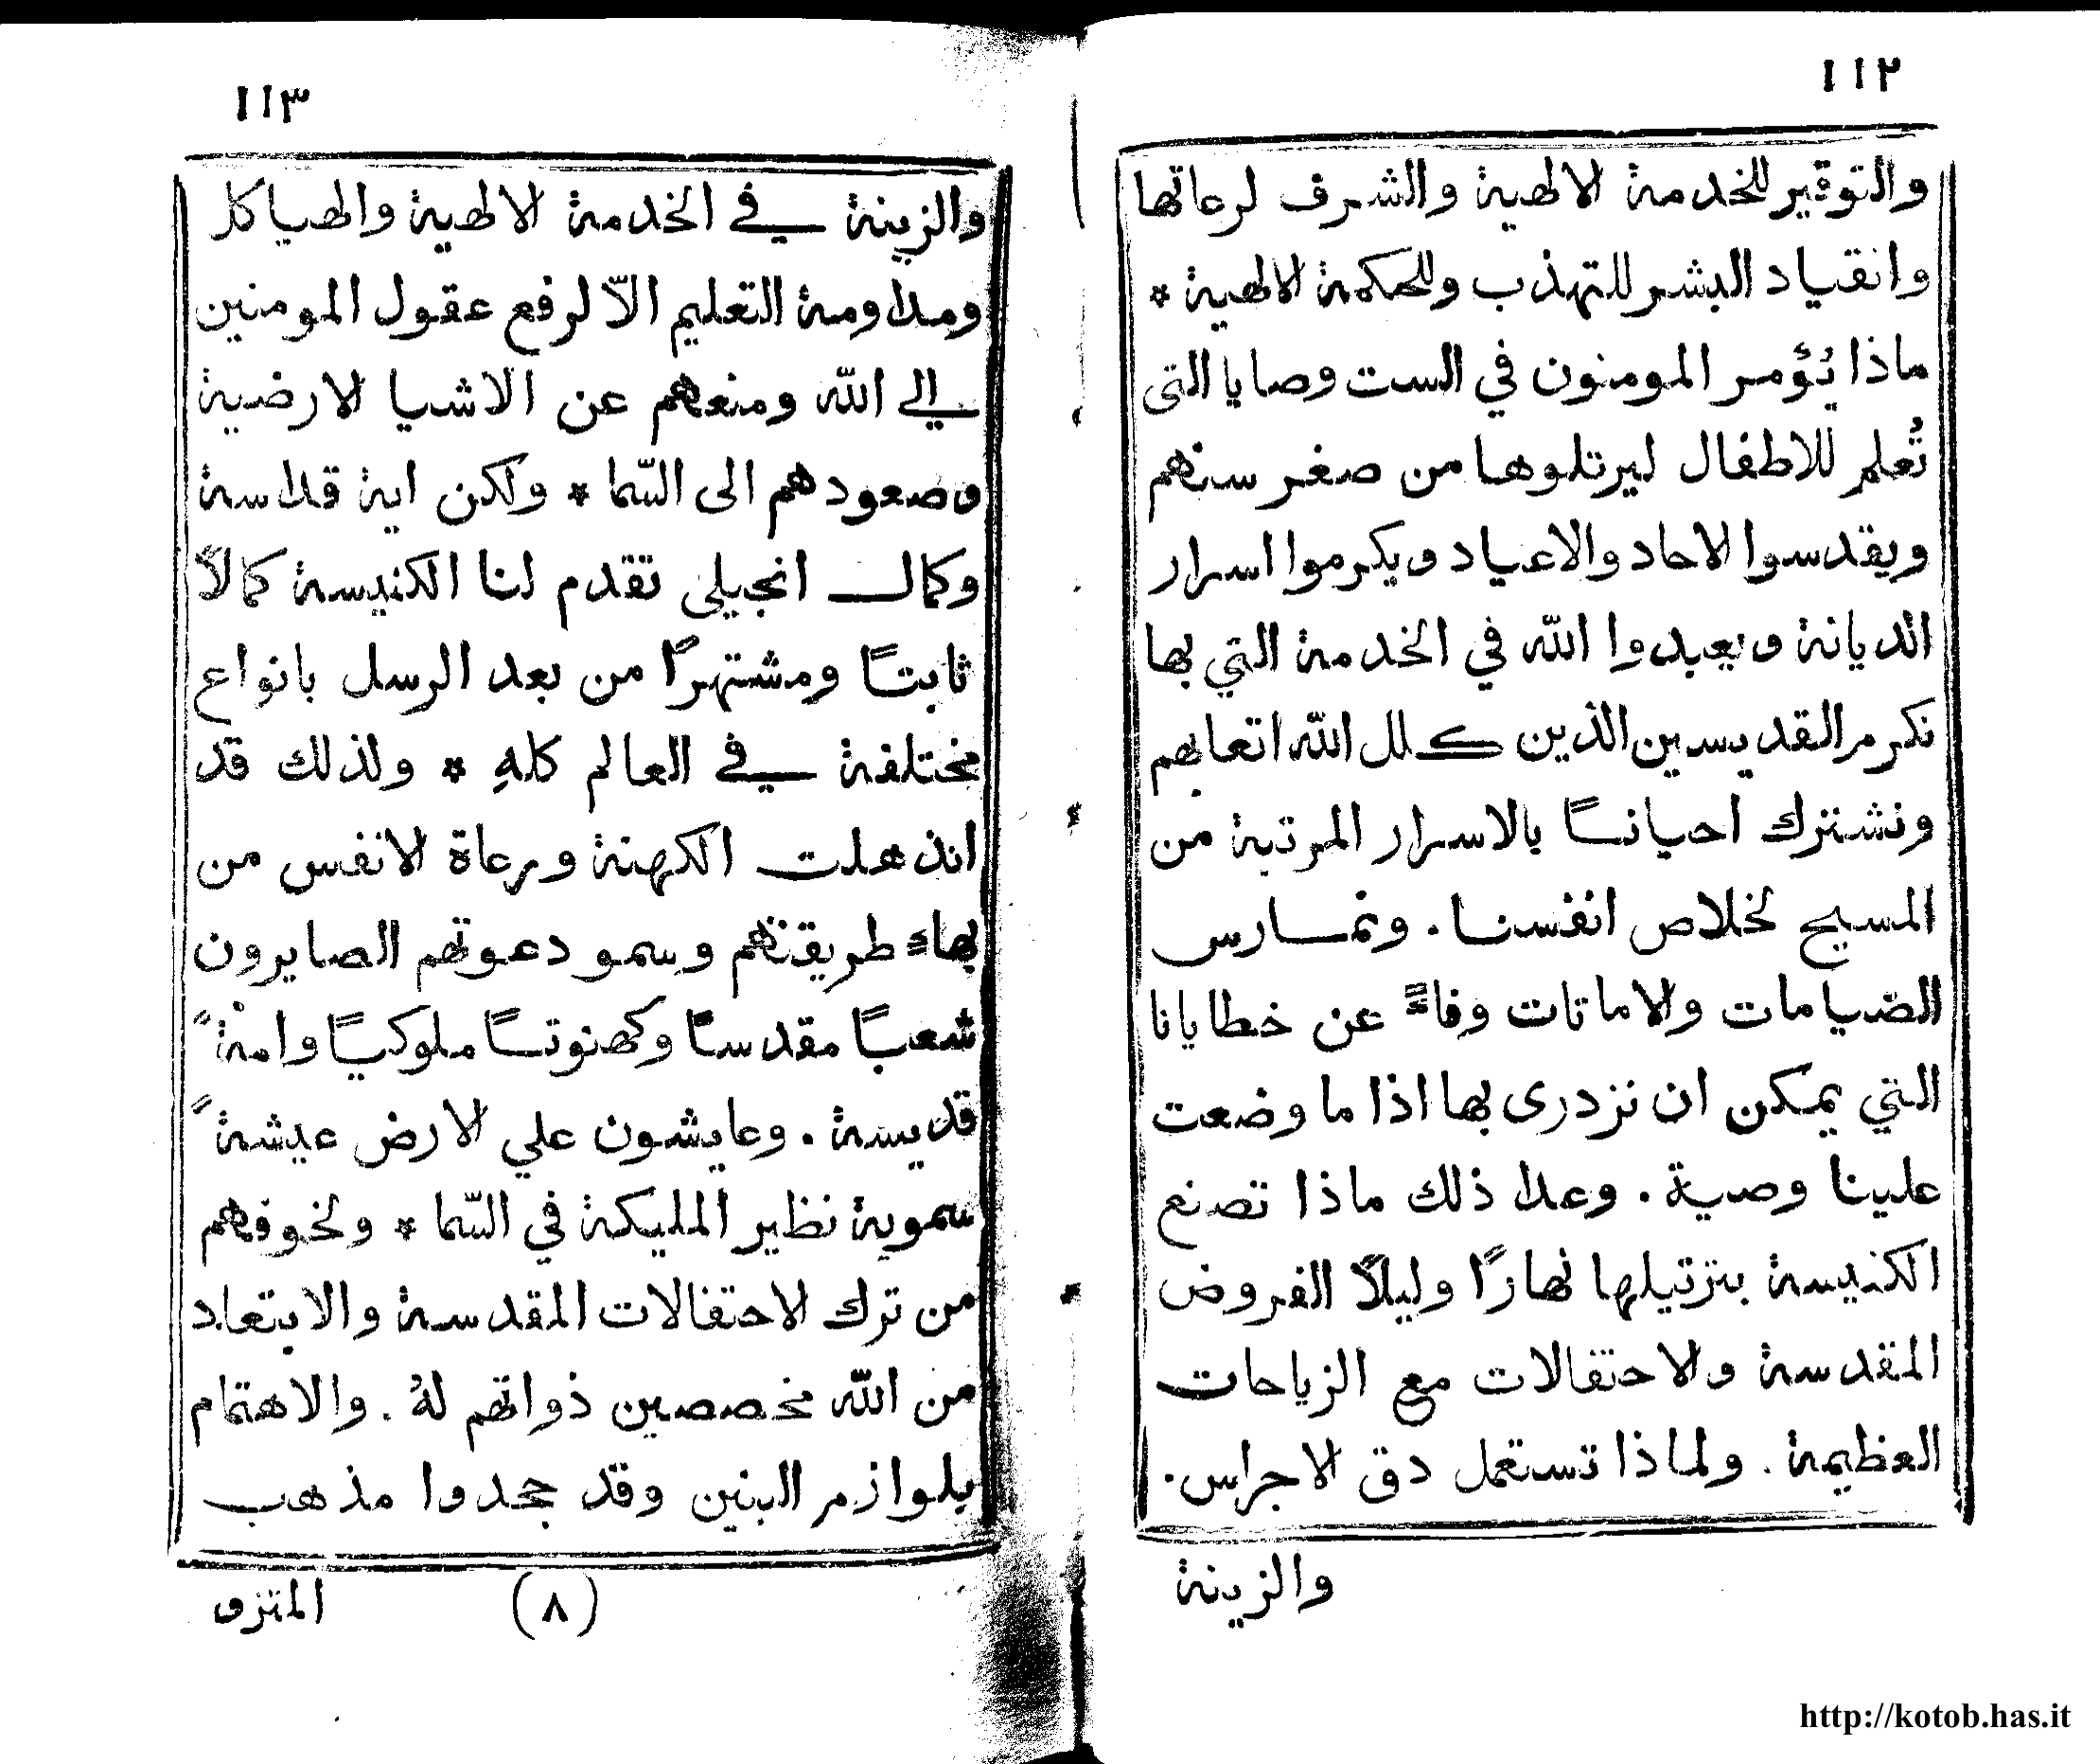 ١١٢
والتوقير للخدمة الالهية والشرف لرعاتها
وانقياد البشر للتهذب وللحكمة الالهية *
ماذا يُؤمر المومنون في الست وصايا التى
تُعلم للاطفال ليرتلوها من صغر سنهم
ويقدسوا الاحاد والاعياد ويكرموا اسرار
الديانة ويعبدوا الله في الخدمة التي بها
نكرم القديسين الذين كلل الله اتعابهم
ونشترك احيانًا بالاسرار المرتبة من
المسيح لخلاص انفسنا . ونمارس
الصّيامات والاماتات وفاءً عن خطايانا
التي يمكن ان نزدرى بها اذا ما وضعت
علينا وصية . وعدا ذلك ماذا تصنع
الكنيسة بترتيلها نهارًا وليلًا الفروض
المقدسة والاحتفالات مع الزياحات
العظيمة . ولماذا تستعمل دق الاجراس.
والزينة
١١٣
والزينة في الخدمة الالهية والهياكل
ومداومة التعليم الّا لرفع عقول المومنين
الي الله ومنعهم عن الاشيا الارضية
وصعودهم الى السّما * ولكن اية قداسة
وكمال انجيلى تقدم لنا الكنيسة كمالاً
ثابتًا ومشتهرًا من بعد الرسل بانواع
مختلفة في العالم كلهِ * ولذلك قد
انذهلت الكهنة ورعاة الانفس من
بهاءِ طريقتهم وسمو دعوتهم الصايرون
شعبًا مقدسًا وكهنوتًا ملوكيًا وامةً
قديسة . وعايشون علي الارض عيشةً
سموية نظير المليكة في السّما * ولخوفهم
من ترك الاحتفالات المقدسة والابتعاد
من الله مخصصين ذواتهم لهُ . والاهتمام
بلوازم البنين وقد جحدوا مذهب
(٨) المتزو
http://kotob.has.it